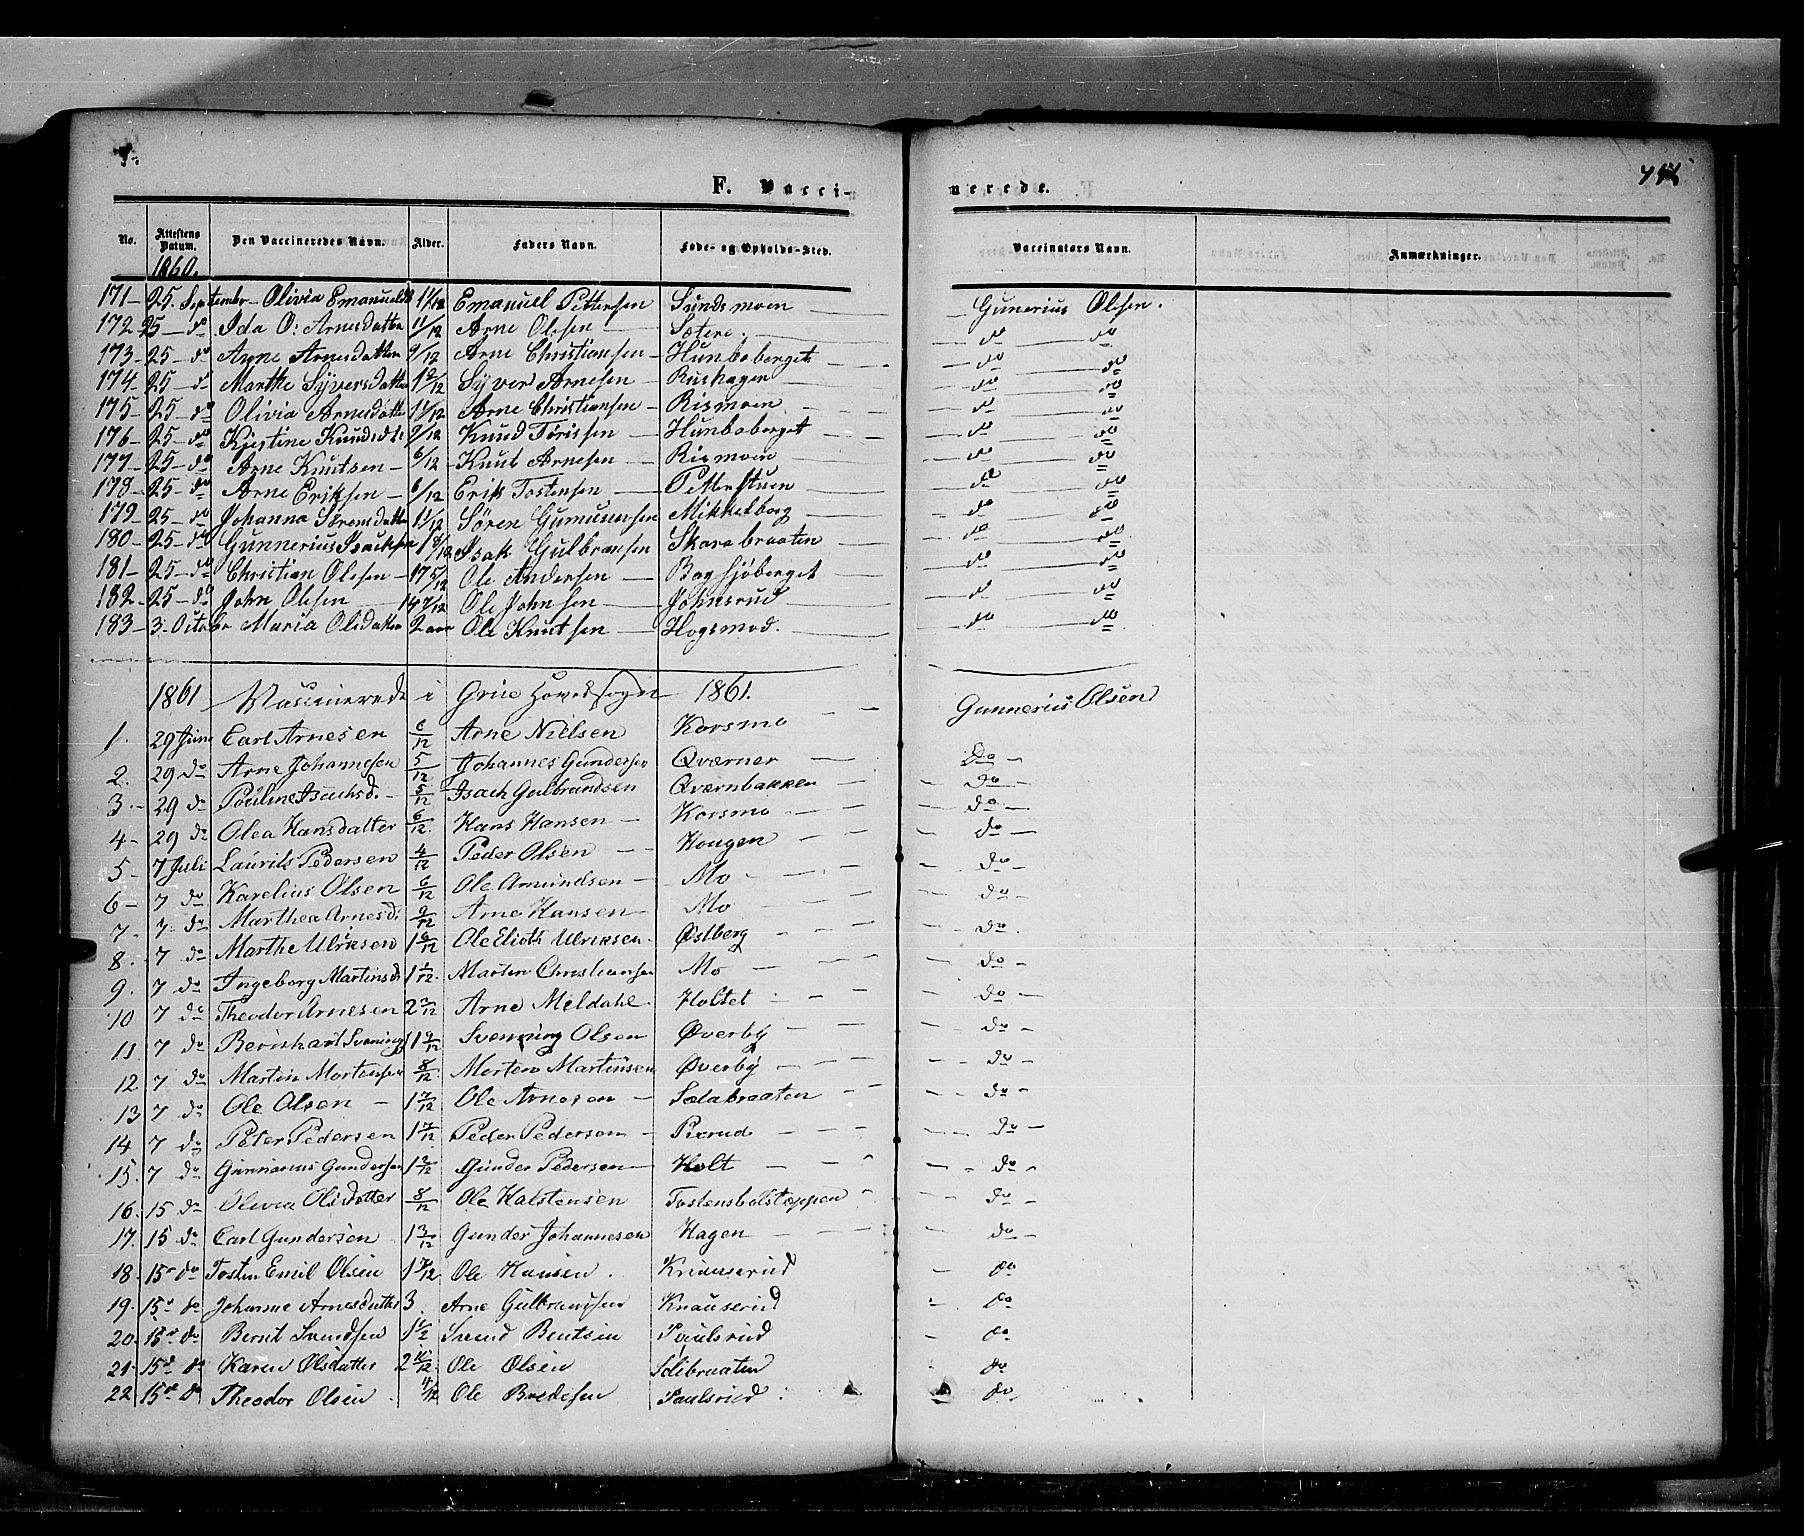 F. Vacci-
nerede.
No. Attestens Datum. Den Vaccineredes Navn. Alder. Faders Navn. Føde- og Opholds-Sted. Vaccinators Navn. Anmærkninger.
1860.
171 – 25 September – Olivia Emanuelsd 1 1/12 Emanuel Pettersen Sundsmoen – Gunerius Olsen.
172 25 – do Ida O: Arnesdatter 11/12 Arne Olsen – Sætere. – do do
173 – 25 – do Anne Arnesdatter 9/12 Arne Christiansen – Hunboberget – do do
174 – 25 – d Marthe Syversdatter 1 2/12 Syver Arnesen – Rushagen – do do
175 – 25 – do Olivia Arnesdatter 1 1/12 Arne Christiansen – Rismoen – do do
176 – 25 – do Kristine Knudsdtr 9/12 Knud Tørisen – Hunboberget – do do
177 – 25 – do Arne Knutsen – 6/12 – Knut Arnesen – Rismoen – do do
178 – 25 – do Arne Eriksen – 6/12 Erik Tostensen – Petterstuen – do do
179 – 25 – do Johanna Sørensdatter 1 1/12 Søren Gumusensen Mikkelborg – do do
180 – 25 – do Gunnerius Isaksen 1 8/12 Isak Gulbransen Skarabraaten – do do
181 – 25 – do Christian Olesen – 17 5/12 Ole Andersen – Bagsjøberget – do do
182 – 25 – do John Olesen – 14 7/12 Ole Johnsen – Johnsrud – do do
183 – 3 October Maria Olsdatter 2 aar Ole Knutsen – Hogsmod. – do do
1861 Vaccinerede i Grue Hovedsogn 1861.
1. 29 Juni Carl Arnesen 6/12 Arne Nielsen Korsmo – – Gunnerius Olsen
2. 29 do Arne Johannesen 5/12 Johannes Gundersen Qværner – – Do –
3. – 29 do Pouline Isachsd. – 5/12 Isach Gulbrandsen Qværnbakken – – do –
4 – 29 do Olea Hansdatter 6/12. Hans Hansen – Korsmo – – do –
5 – 7 Juli Laurits Pedersen 4/12 Peder Olsen – – Hougen – – do –
6 – 7 do Karelius Olsen 6/12 Ole Amundsen – Mo – – do –
7. – 7 do Marthea Arnesd: 9/12 Arne Hansen – Mo – – do –
8. 7 do Marthe Ulriksen 1 6/12 Ole Eliots Ulriksen. Østberg – – do.
9. 7 do Ingeborg Martinsd 1 1/12. Marten Christiansen Mo – – do –
10 7 do Theodor Arnesen 2 2/12 Arne Meldahl. Holtet – – do –
11 7 do Bernhart Svenings 1 9/12 Svenning Olsen Øverby – – do –
12 7 do Martin Mortensen 8/12 Morten Martinsen Øverby – – do –
13 7 do Ole Olsen – 1 7/12 Ole Arnesen – Solabraaten – – do –
14 7 do Peter Pedersen 1 7/12 Peder Pedersen – Rærud – – do –
15. 7 do Gunnarius Gundersen 1 2/12 Gunder Pedersen – Holt – – do –
16. 15 do Olivia Olsdatter 8/12 Ole Halstensen Tostensbolstoppen – do –
17. 15 do Carl Gundersen 1 3/12 Gunder Johannesen Hagen – – do –
18. 15de do Tosten Emil Olsen 1 7/12 Ole Hansen. Knauserud – do
19. 15de do Johanne Arnesdatter 3. Arne Gulbransen Knauserud – do
20. 15de do Bernt Svendsen 1 1/2 Svend Bentsen Paulsrud – do
21. 15de do Karen Olsdatter 2 11/12. Ole Olsen Solibraaten do
22. 15de do Theodor Olsen. 4/12 Ole Bredesen Paulsrud. do